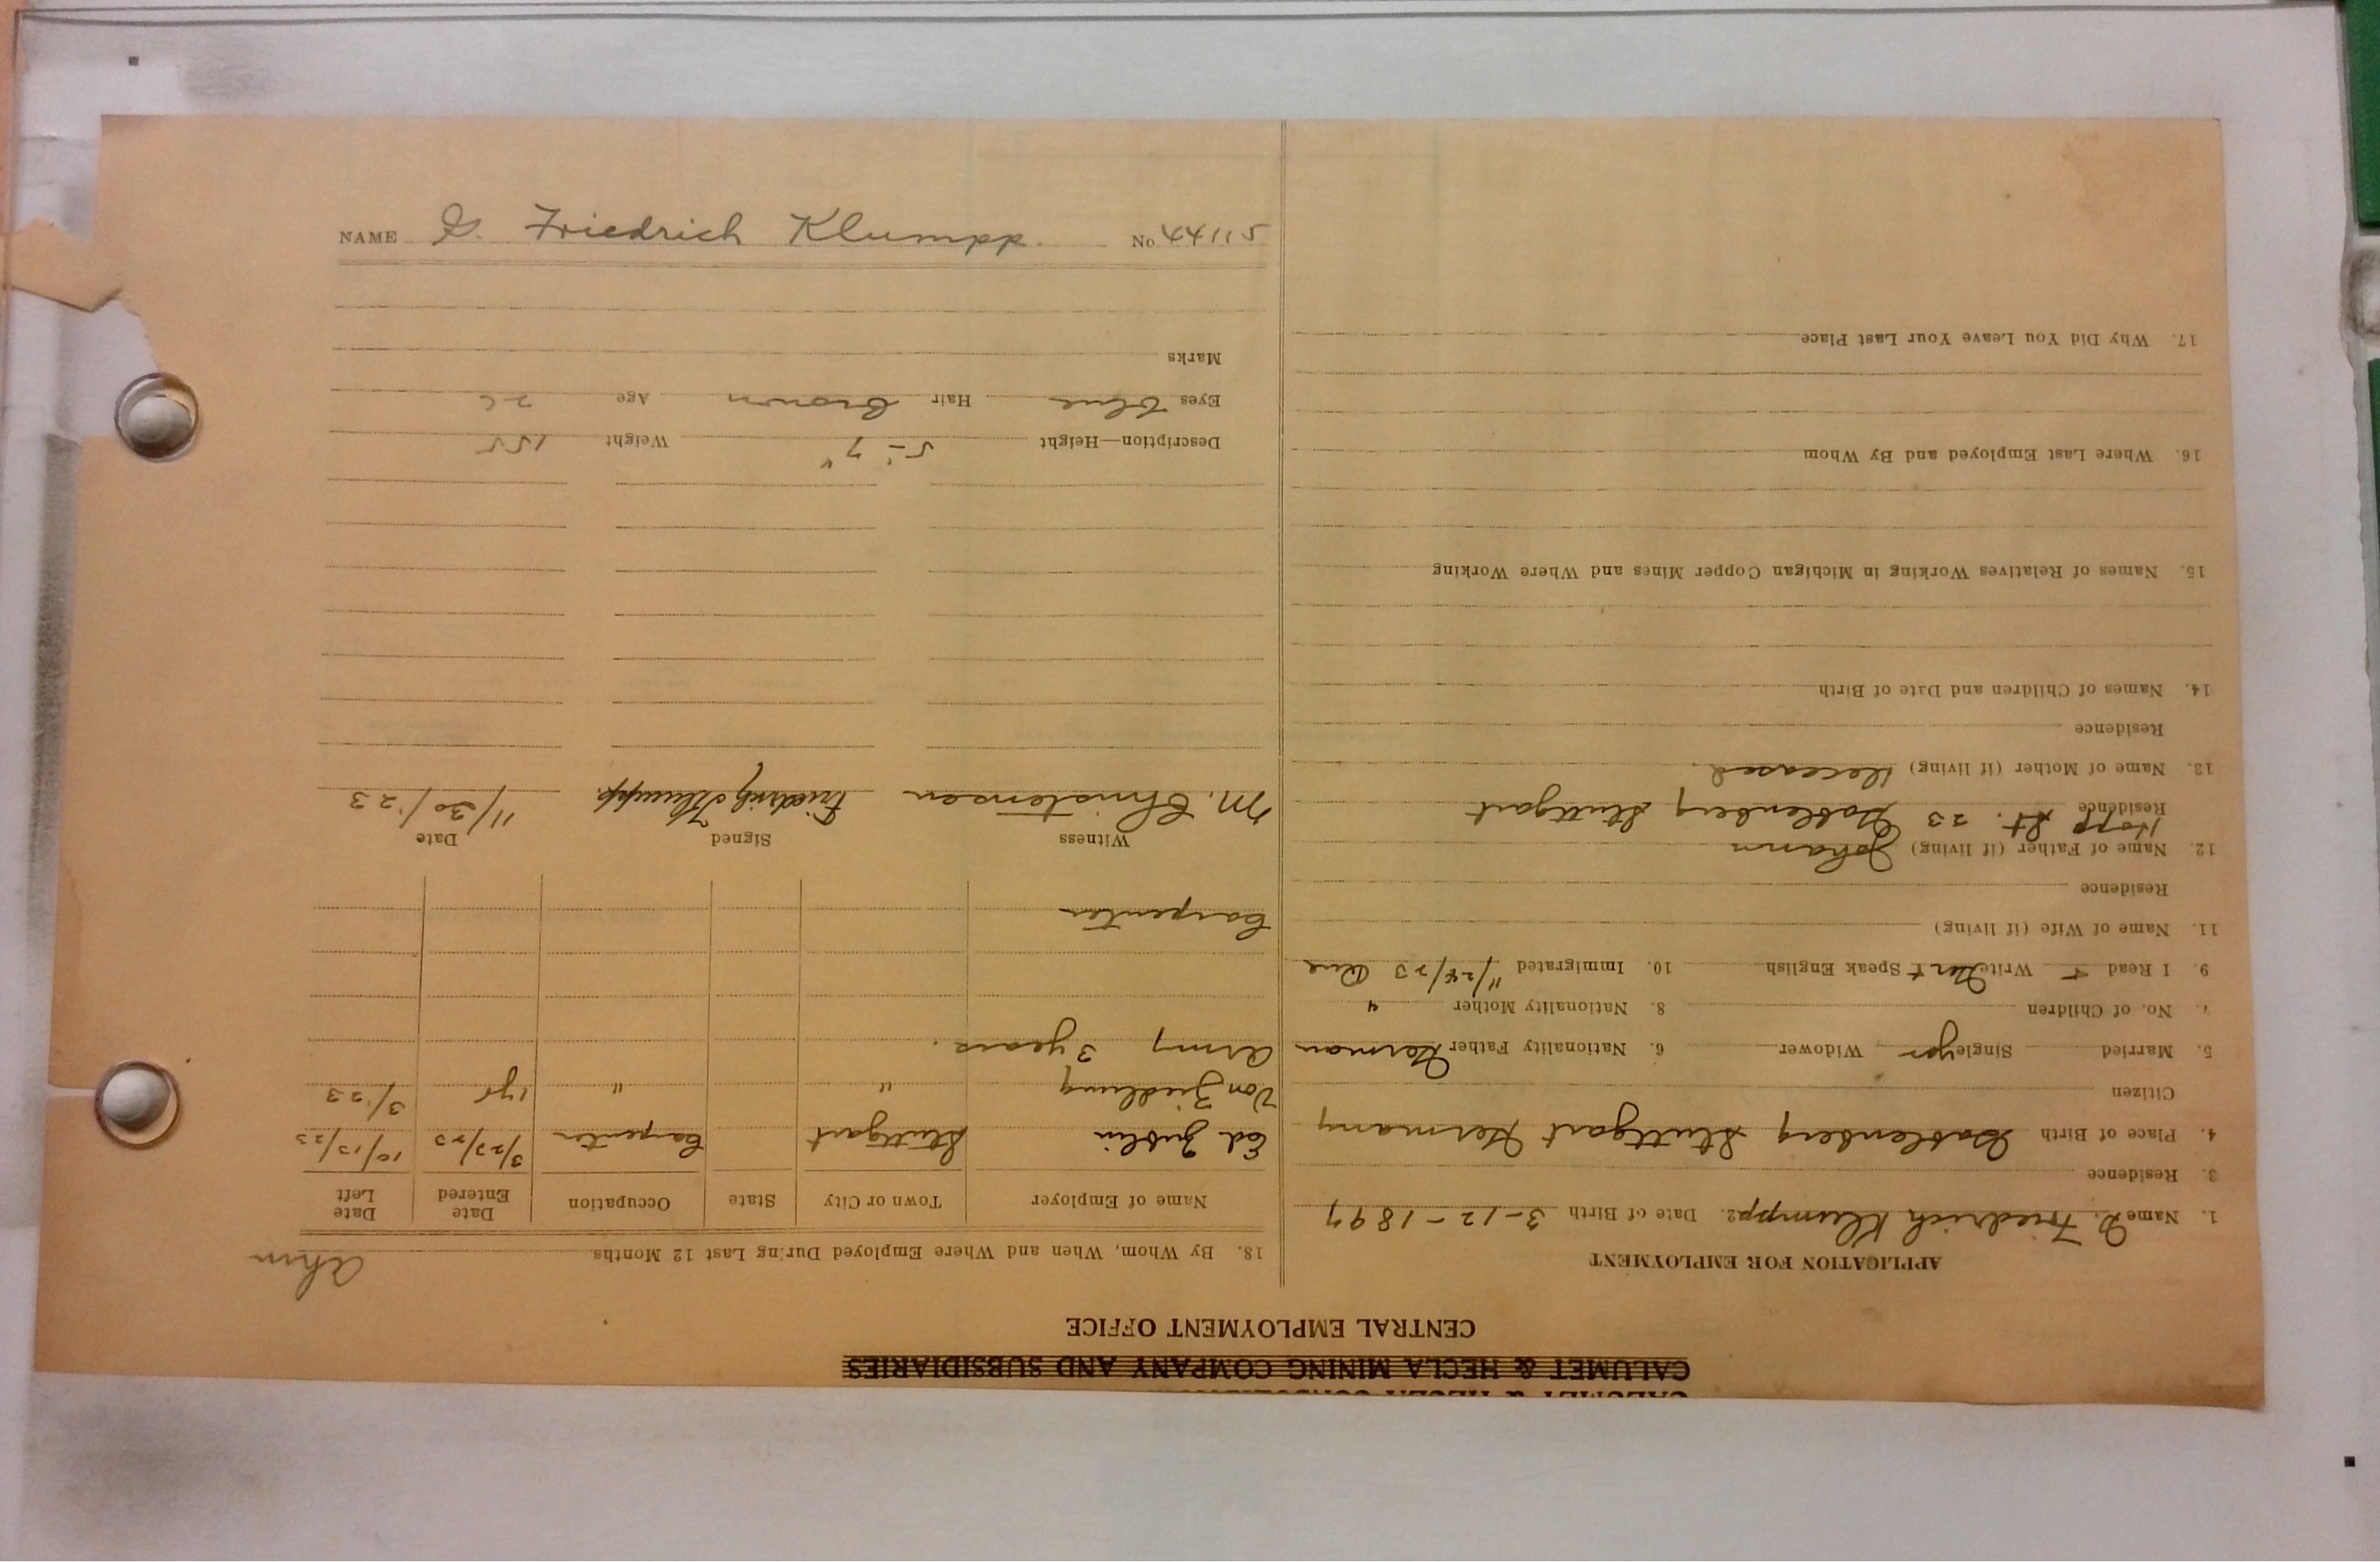 NAME G. Friedrich Klumpp. No. 44115
CALUMET & HECLA MINING COMPANY AND SUBSIDIARIES
CENTRAL EMPLOYMENT OFFICE
APPLICATION FOR EMPLOYMENT
1. Name G. Friedrich Klumpp 2. Date of Birth 3-12-1897
3. Residence
4. Place of Birth Gablenberg Stuttgart Germany
Citizen
5. Married Single yes Widower 6. Nationality Father German
7. No. of Children 8. Nationality Mother "
9. I Read + Write Ger + Speak English 10. Immigrated 11/28/23
11. Name of Wife (if living)
Residence
12. Name of Father (if living) Johann
Residence St. 23 Gablenberg Stuttgart
13. Name of Mother (if living) Deceased.
Residence
14. Names of Children and Date of Birth
15. Names of Relatives Working in Michigan Copper Mines and Where Working
16. Where Last Employed and By Whom
17. Why Did You Leave Your Last Place
18. By Whom, When and Where Employed During Last 12 Months
Ahm
Name of Employer Town or City State Occupation Date Entered Date Left
Ed. Zublin Stuttgart Carpenter 3/23/23 10/13/23
Von " " 1 yr 3/23
Army 3 years.
Carpenter
Witness Signed Date
M. Christensen Friedrich Klumpp. 11/30/23
Description—Height 5'-7" Weight 155
Eyes Blue Hair Brown Age 26
Marks